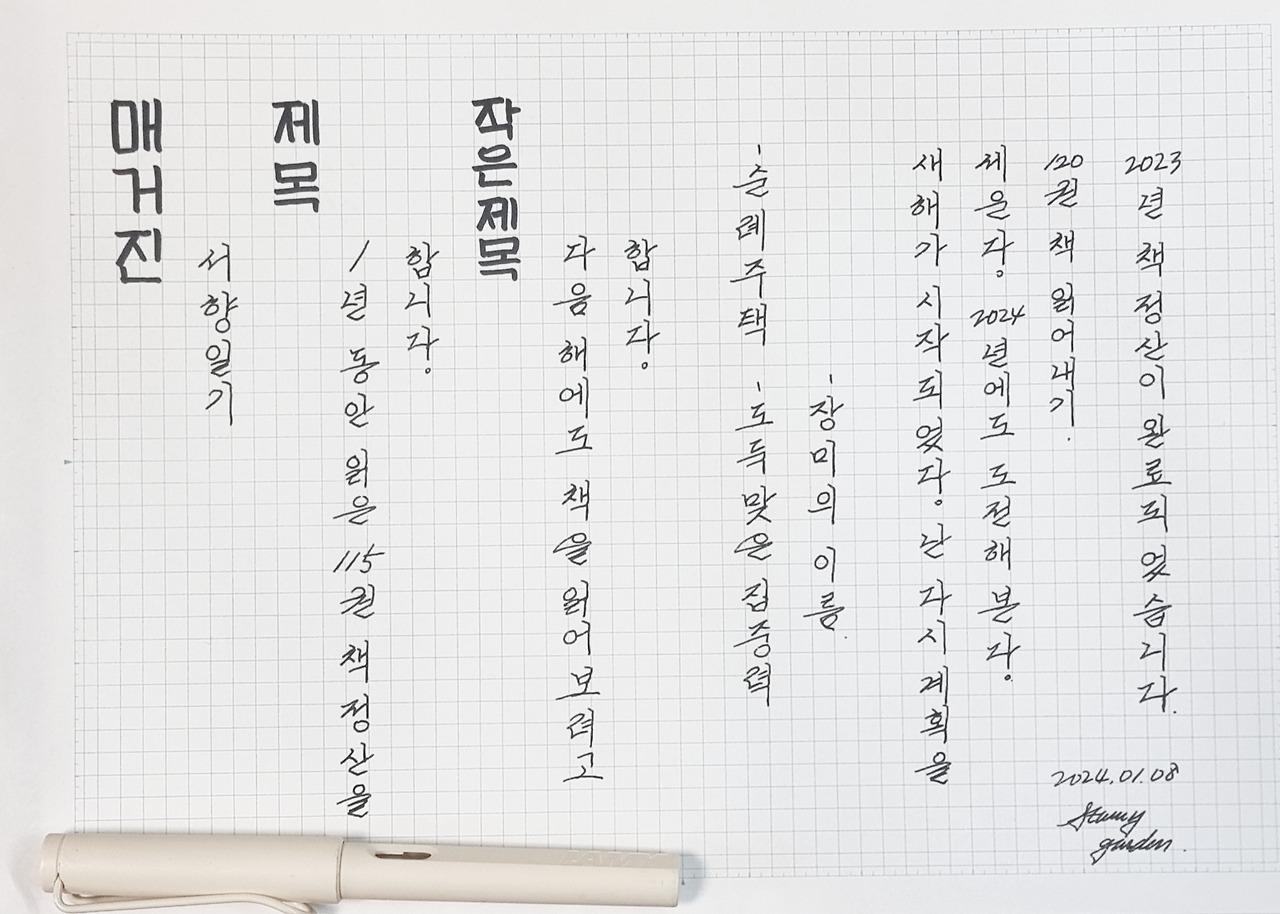 매거진
서향일기
제목
1년 동안 읽은 115권 책 정산을
합니다.
작은제목
다음 해에도 책을 읽어보려고
합니다.
-순례주택 -도둑맞은 집중력
-장미의 이름.
새해가 시작되었다. 난 다시 계획을
세운다. 2024년에도 도전해 본다.
120권 책 읽어내기.
2023년 책 정산이 완료되었습니다.
2024.01.08
garden.